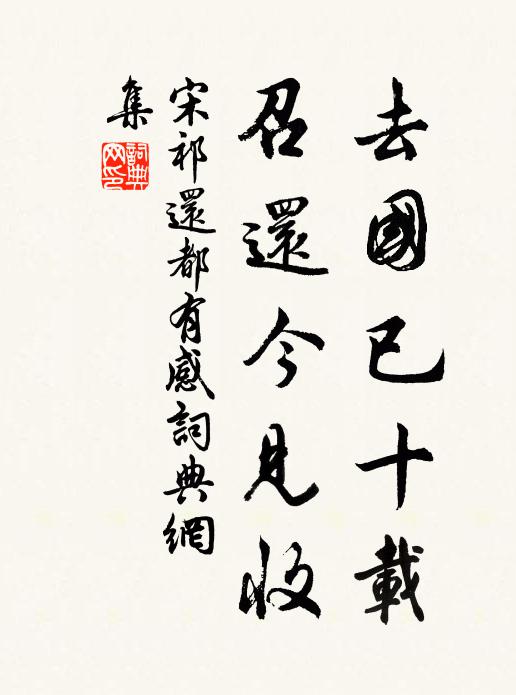 去國已十載
召還今見收
宋祁還都有感詞典網
集
詞典網印